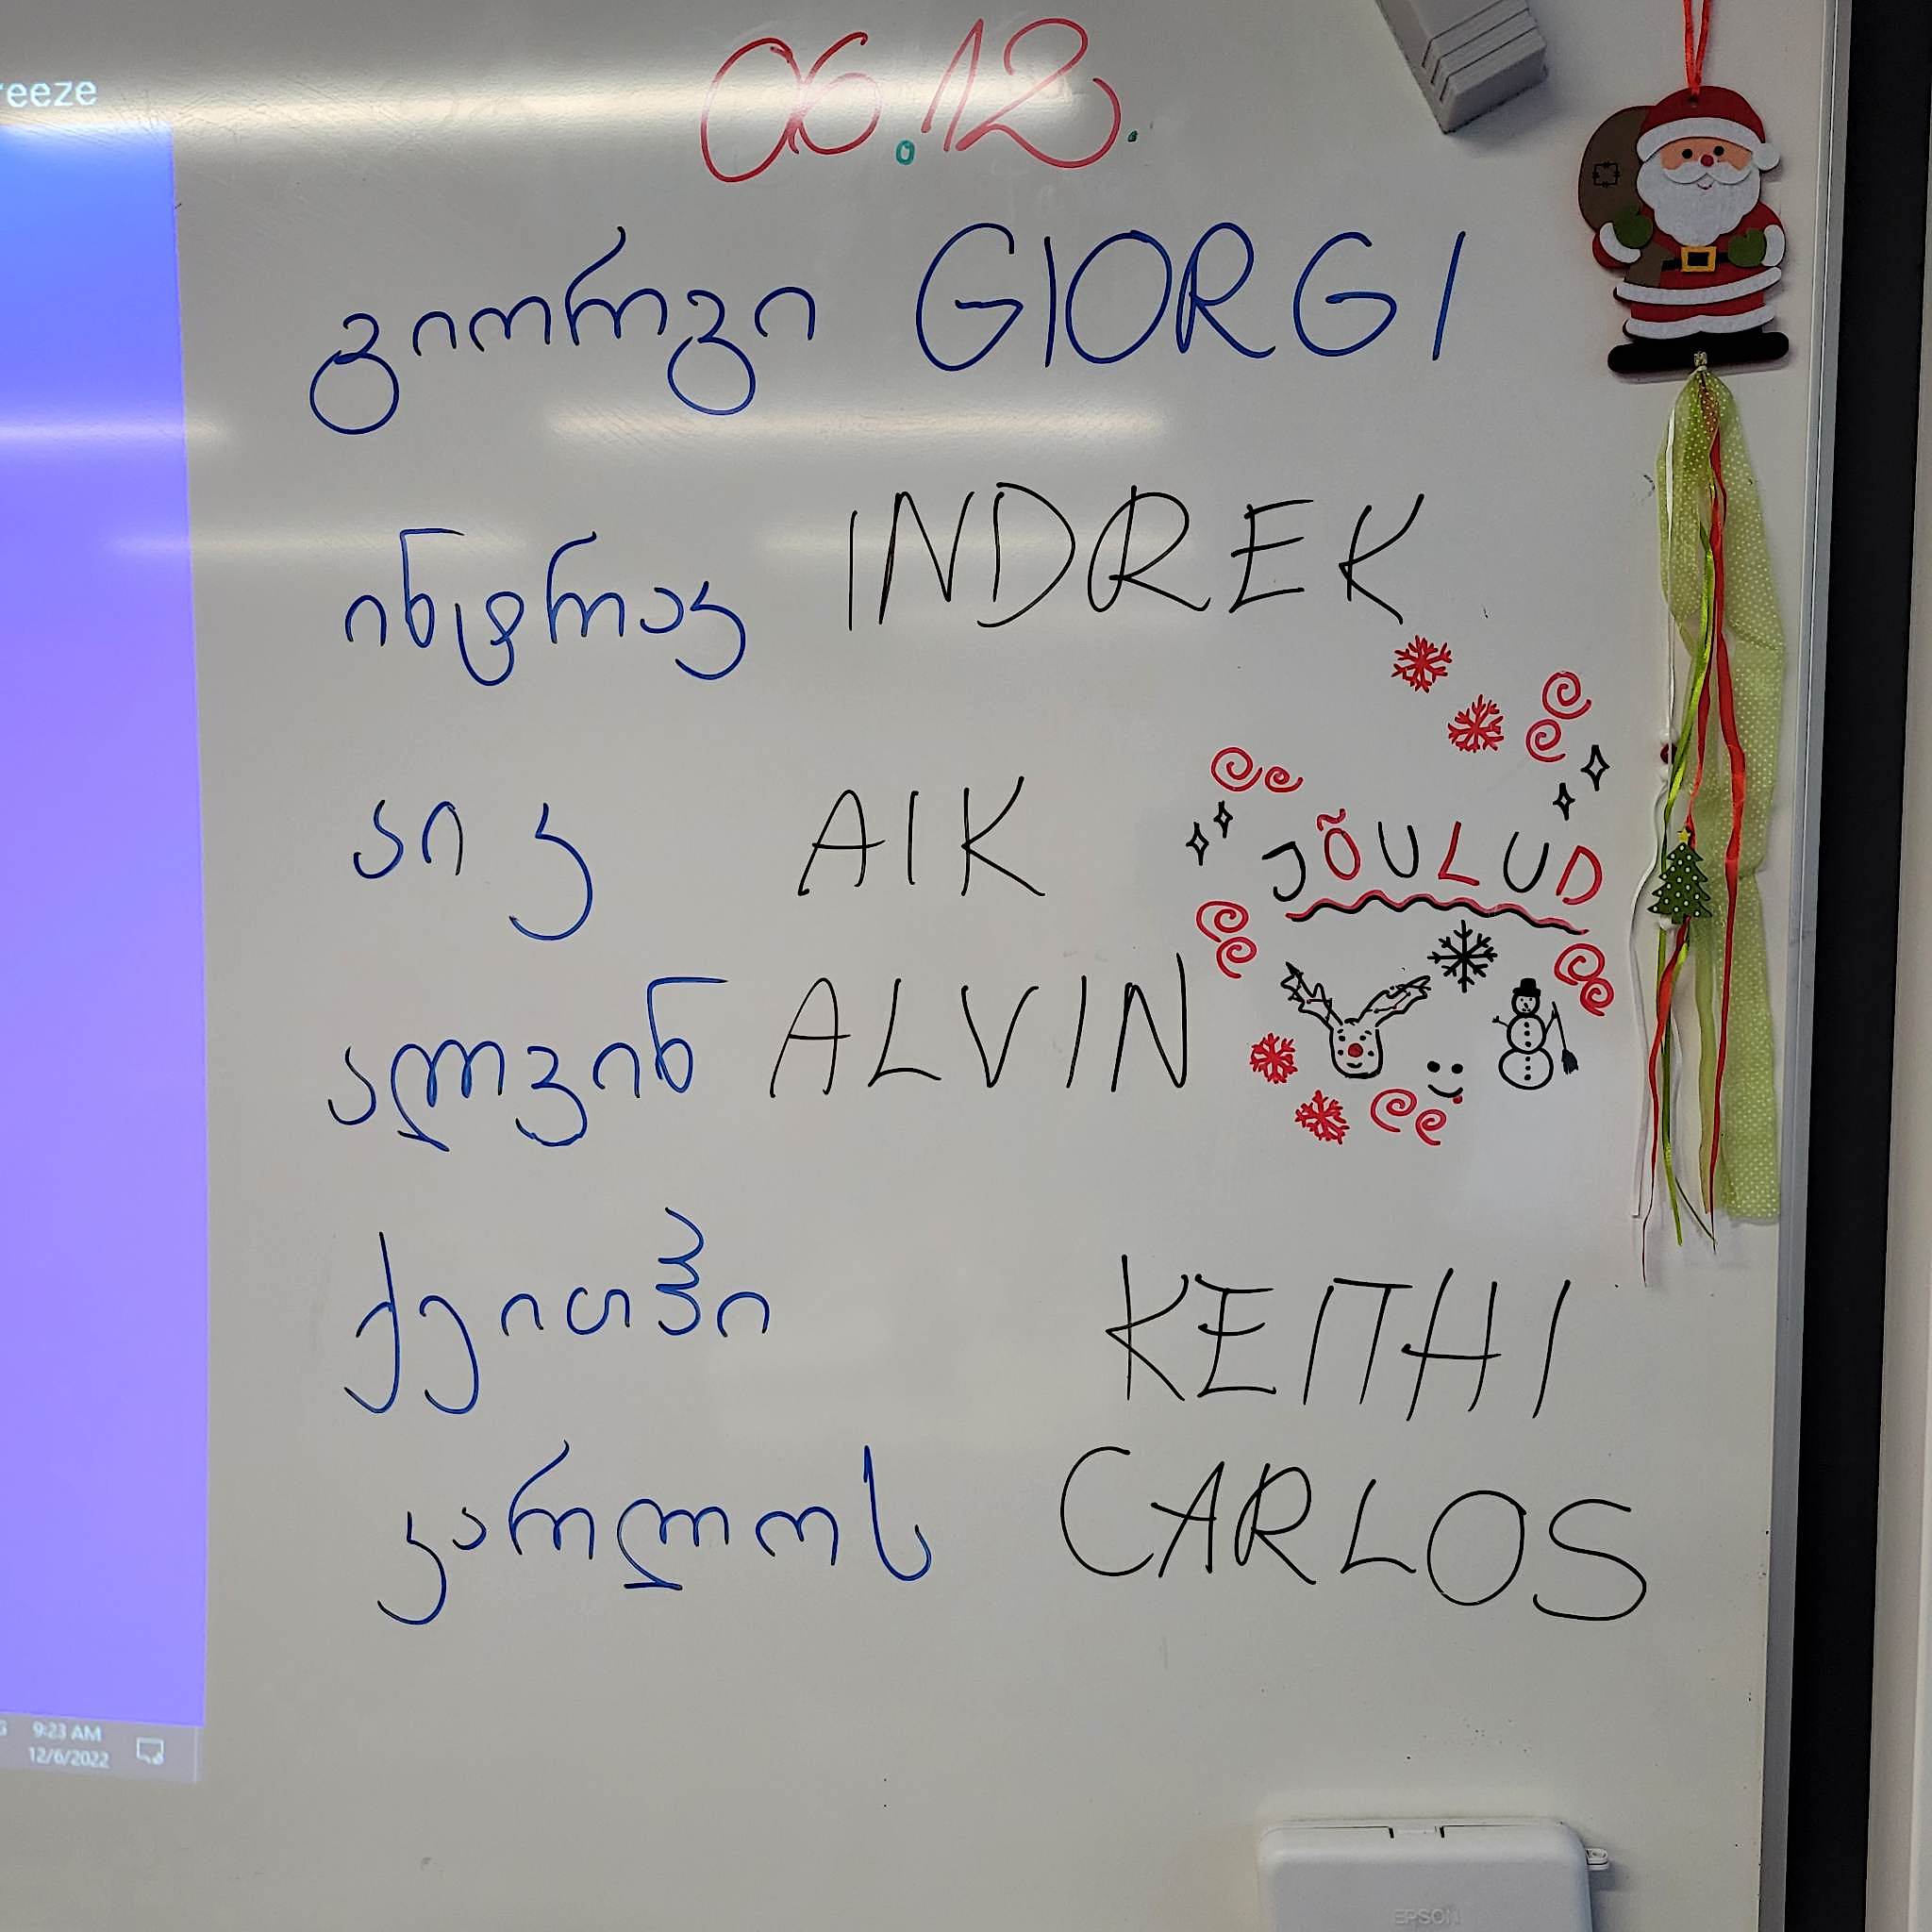 reeze
06.12.
გიორგი GIORGI
ინტრაკ INDREK
აიკ AIK
JÕULUD
ალვინ ALVIN
ქეითჰი KEITHI
კარლოს CARLOS
9:23 AM
12/6/2022
EPSON